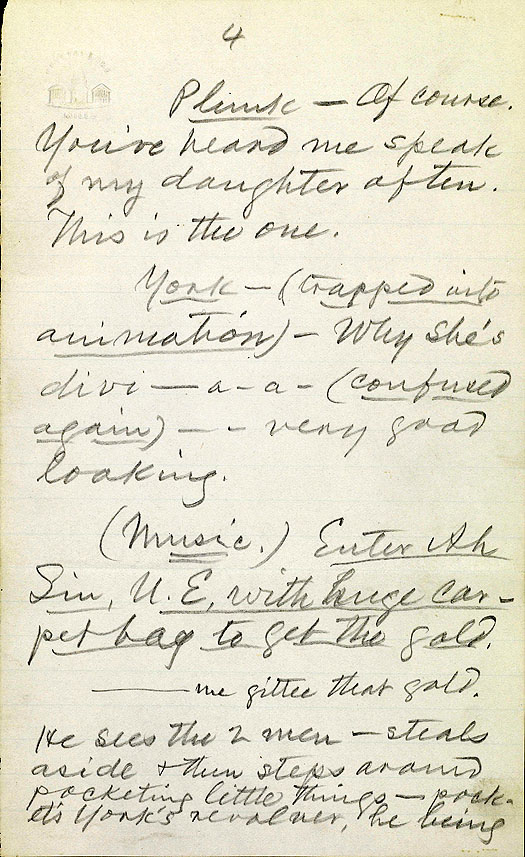 4
Plunk — Of course.
You've heard me speak
of my daughter often.
This is the one.
York — (trapped into
animation) — Why she's
divi — a - a - (confused
again) — - very good
looking.
(Music.) Enter Ah
Sin, U. E, with huge car-
pet bag to get the gold.
——— me gittee that gold.
He sees the 2 men — steals
aside & then steps around
pocketing little things — pock-
ets York's revolver, he being